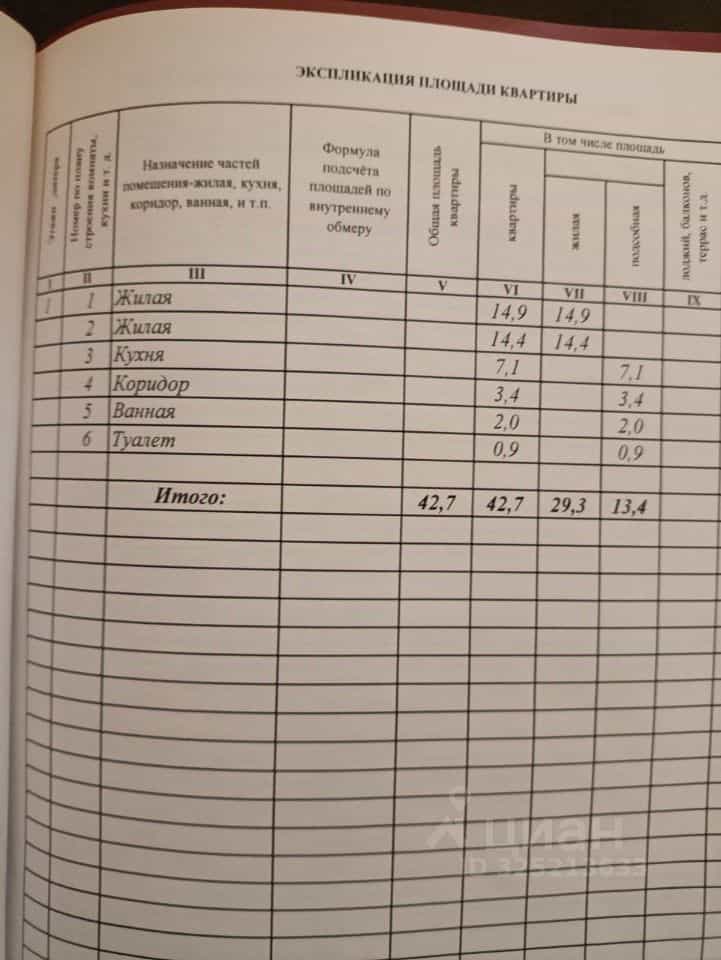 ЭКСПЛИКАЦИЯ ПЛОЩАДИ КВАРТИРЫ
Этажи литера
Номер по плану строения комнаты, кухни и т. д.
Назначение частей
помещения-жилая, кухня,
коридор, ванная, и т.п.
Формула
подсчёта
площадей по
внутреннему
обмеру
Общая площадь
квартиры
В том числе площадь
квартиры
жилая
подсобная
лоджий, балконов,
террас и т.д.
I II III IV V VI VII VIII IX
1 1 Жилая 14,9 14,9
2 Жилая 14,4 14,4
3 Кухня 7,1 7,1
4 Коридор 3,4 3,4
5 Ванная 2,0 2,0
6 Туалет 0,9 0,9
Итого: 42,7 42,7 29,3 13,4
циан